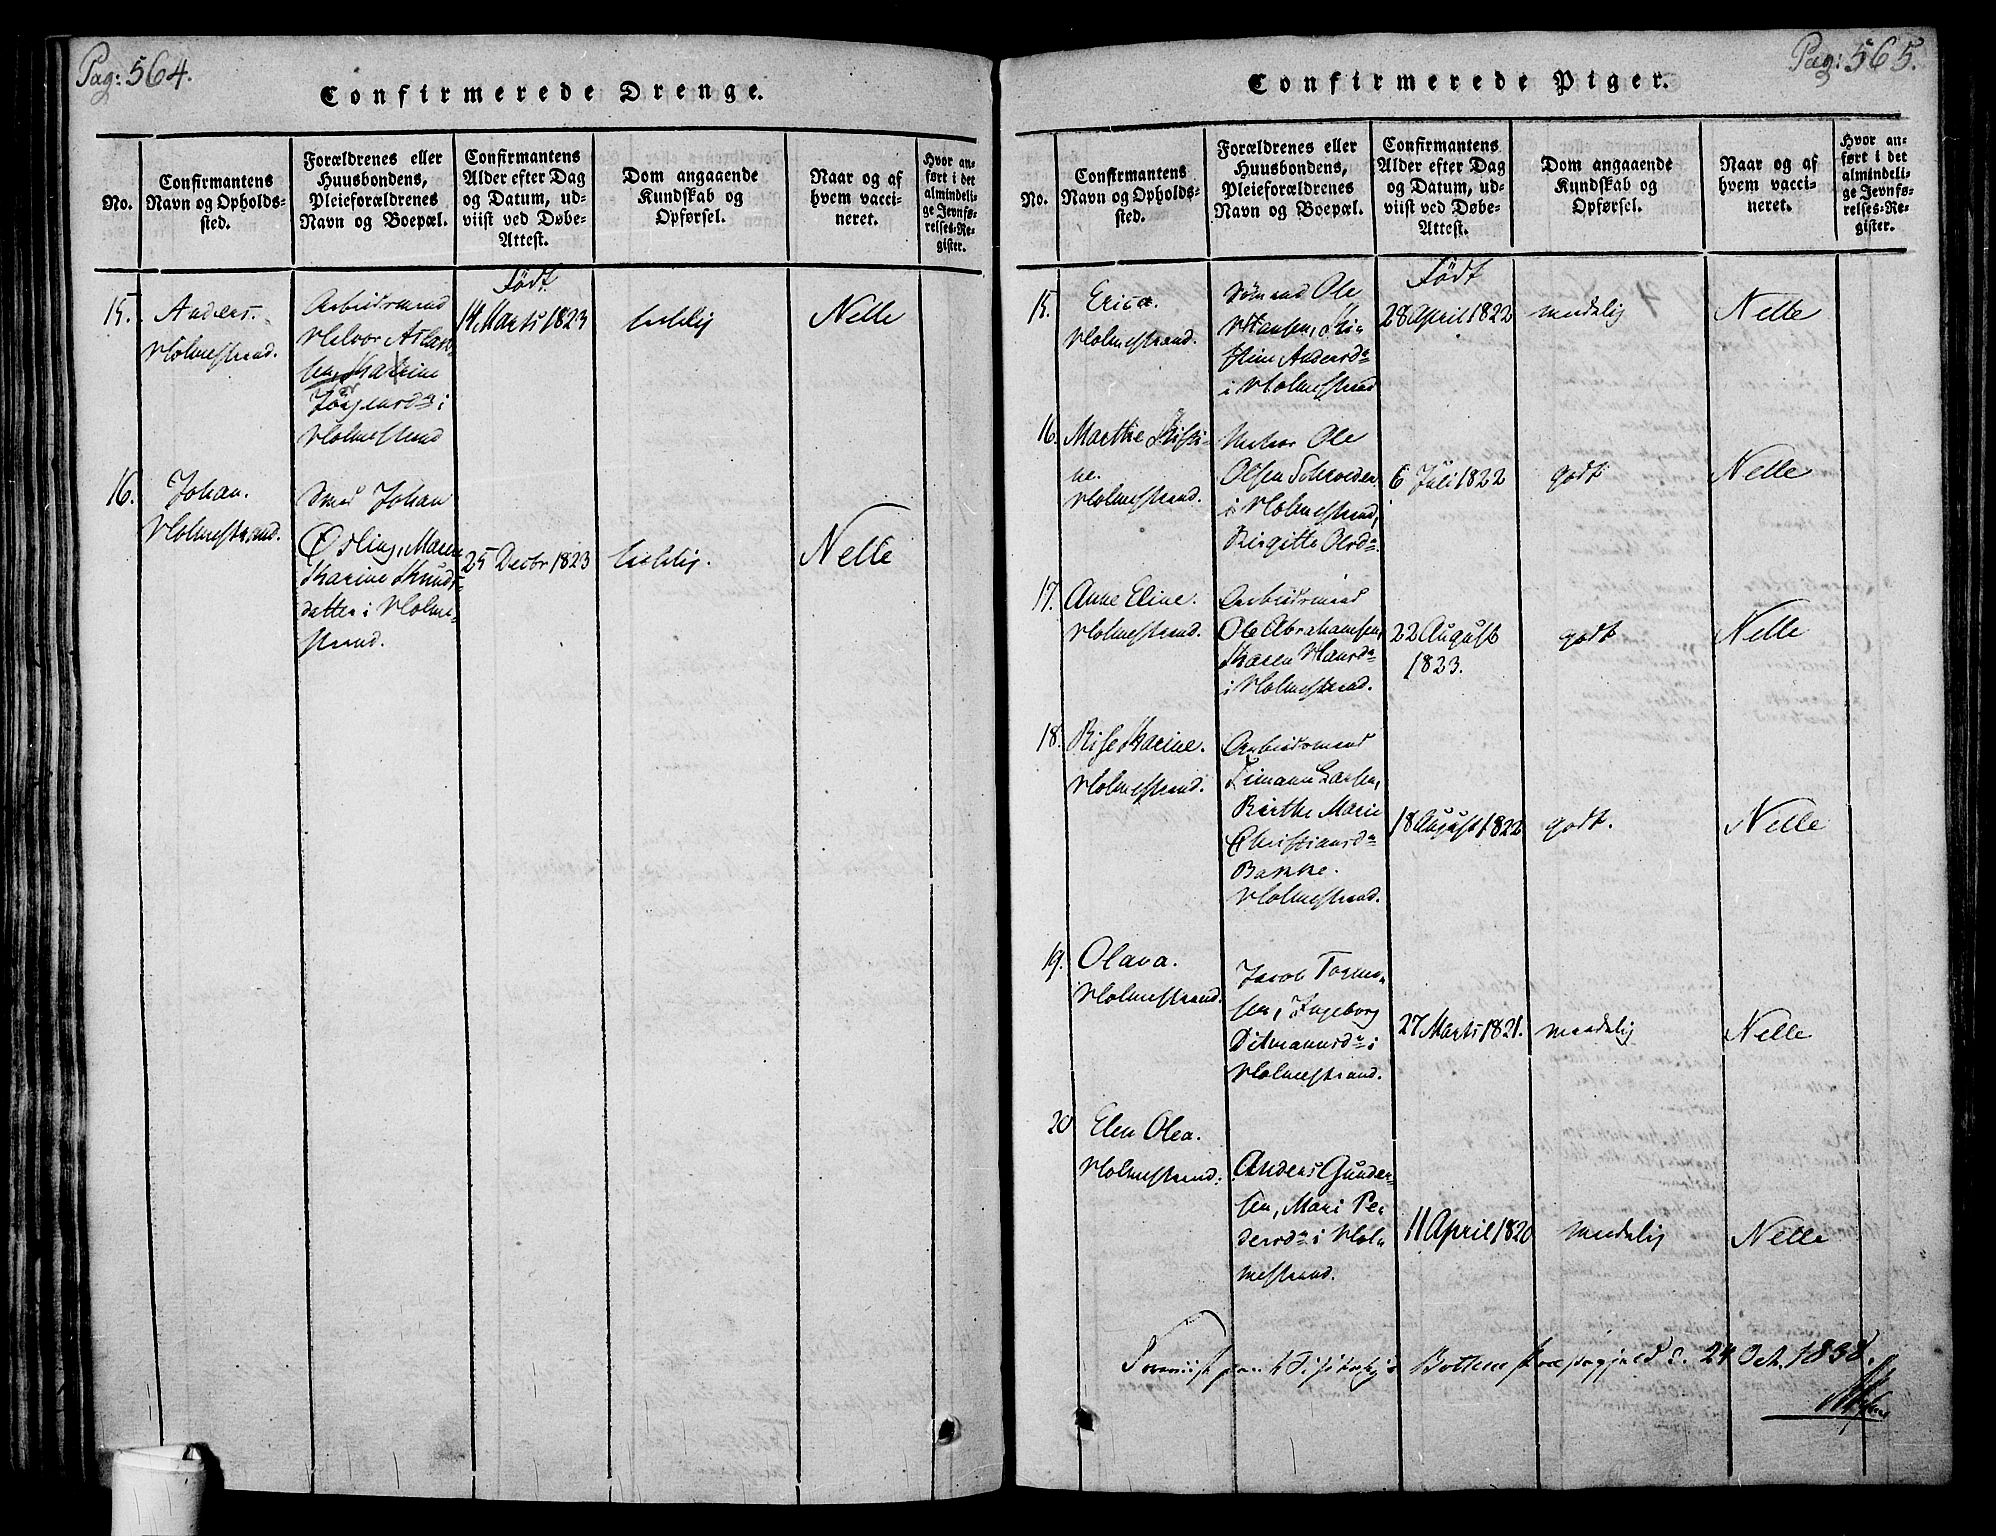 Pag: 564.
Confirmerede Drenge.
No.
Confirmantens
Navn og Opholds-
sted.
Forældrenes eller
Huusbondens,
Pleieforældrenes
Navn og Boepæl.
Confirmantens
Alder efter Dag
og Datum, ud-
viist ved Døbe-
Attest.
Dom angaaende
Kundskab og
Opførsel.
Naar og af
hvem vacci-
neret.
Hvor an-
ført i det
almindeli-
ge Jevnfø-
relses-Re-
gister.
15.
Anders.
Holmestrand.
Arbeidsmand
Halvor Aslak-
sen, Karine
Jørgensdr i
Holmestrand
Födt
14 Marts 1823
Nelle
16.
Johan.
Holmestrand.
Smed Johan
Østling, Maren
Karine Knuds-
datter i Holme-
strand.
25 Decbr 1823
Nelle
Pag: 565.
Confirmerede Piger.
No.
Confirmantens
Navn og Opholds-
sted.
Forældrenes eller
Huusbondens,
Pleieforældrenes
Navn og Boepæl.
Confirmantens
Alder efter Dag
og Datum, ud-
viist ved Døbe-
Attest.
Dom angaaende
Kundskab og
Opførsel.
Naar og af
hvem vacci-
neret.
Hvor an-
ført i det
almindeli-
ge Jevnfø-
relses-Re-
gister.
15.
Erica.
Holmestrand.
Sömand Ole
Hansen, Kir-
stine Andersdr
i Holmestrand
Födt
28 April 1822
maadelig
Nelle
16.
Marthe Kisti-
ne.
Holmestrand.
Ole
Olsen Schrøder
i Holmestrand,
Birgitte Olsdr.
6 Juli 1822
godt
Nelle
17.
Anne Eline.
Holmestrand.
Arbeidsmand
Ole Abrahamsen,
Karen Hansdr
i Holmestrand.
22 August
1823.
godt
Nelle
18.
Rise Karine.
Holmestrand.
Arbeidsmand
Timann Larsen,
Birthe Marie
Christiansdr
Bakke.
Holmestrand.
18 August 1822
godt.
Nelle
19.
Olava.
Holmestrand.
Jacob Torme-
sen, Ingeborg
Ditmannsdr i
Holmestrand.
27 Marts 1821.
maadelig
Nelle
20
Elen Olea.
Holmestrand.
Anders Gunder-
sen, Mari Pe-
dersdr i Hol-
mestrand.
11 April 1820
maadelig
Nelle
Foreviist paa Visitats i Botne Præstegjeld d. 24 Oct. 1838.